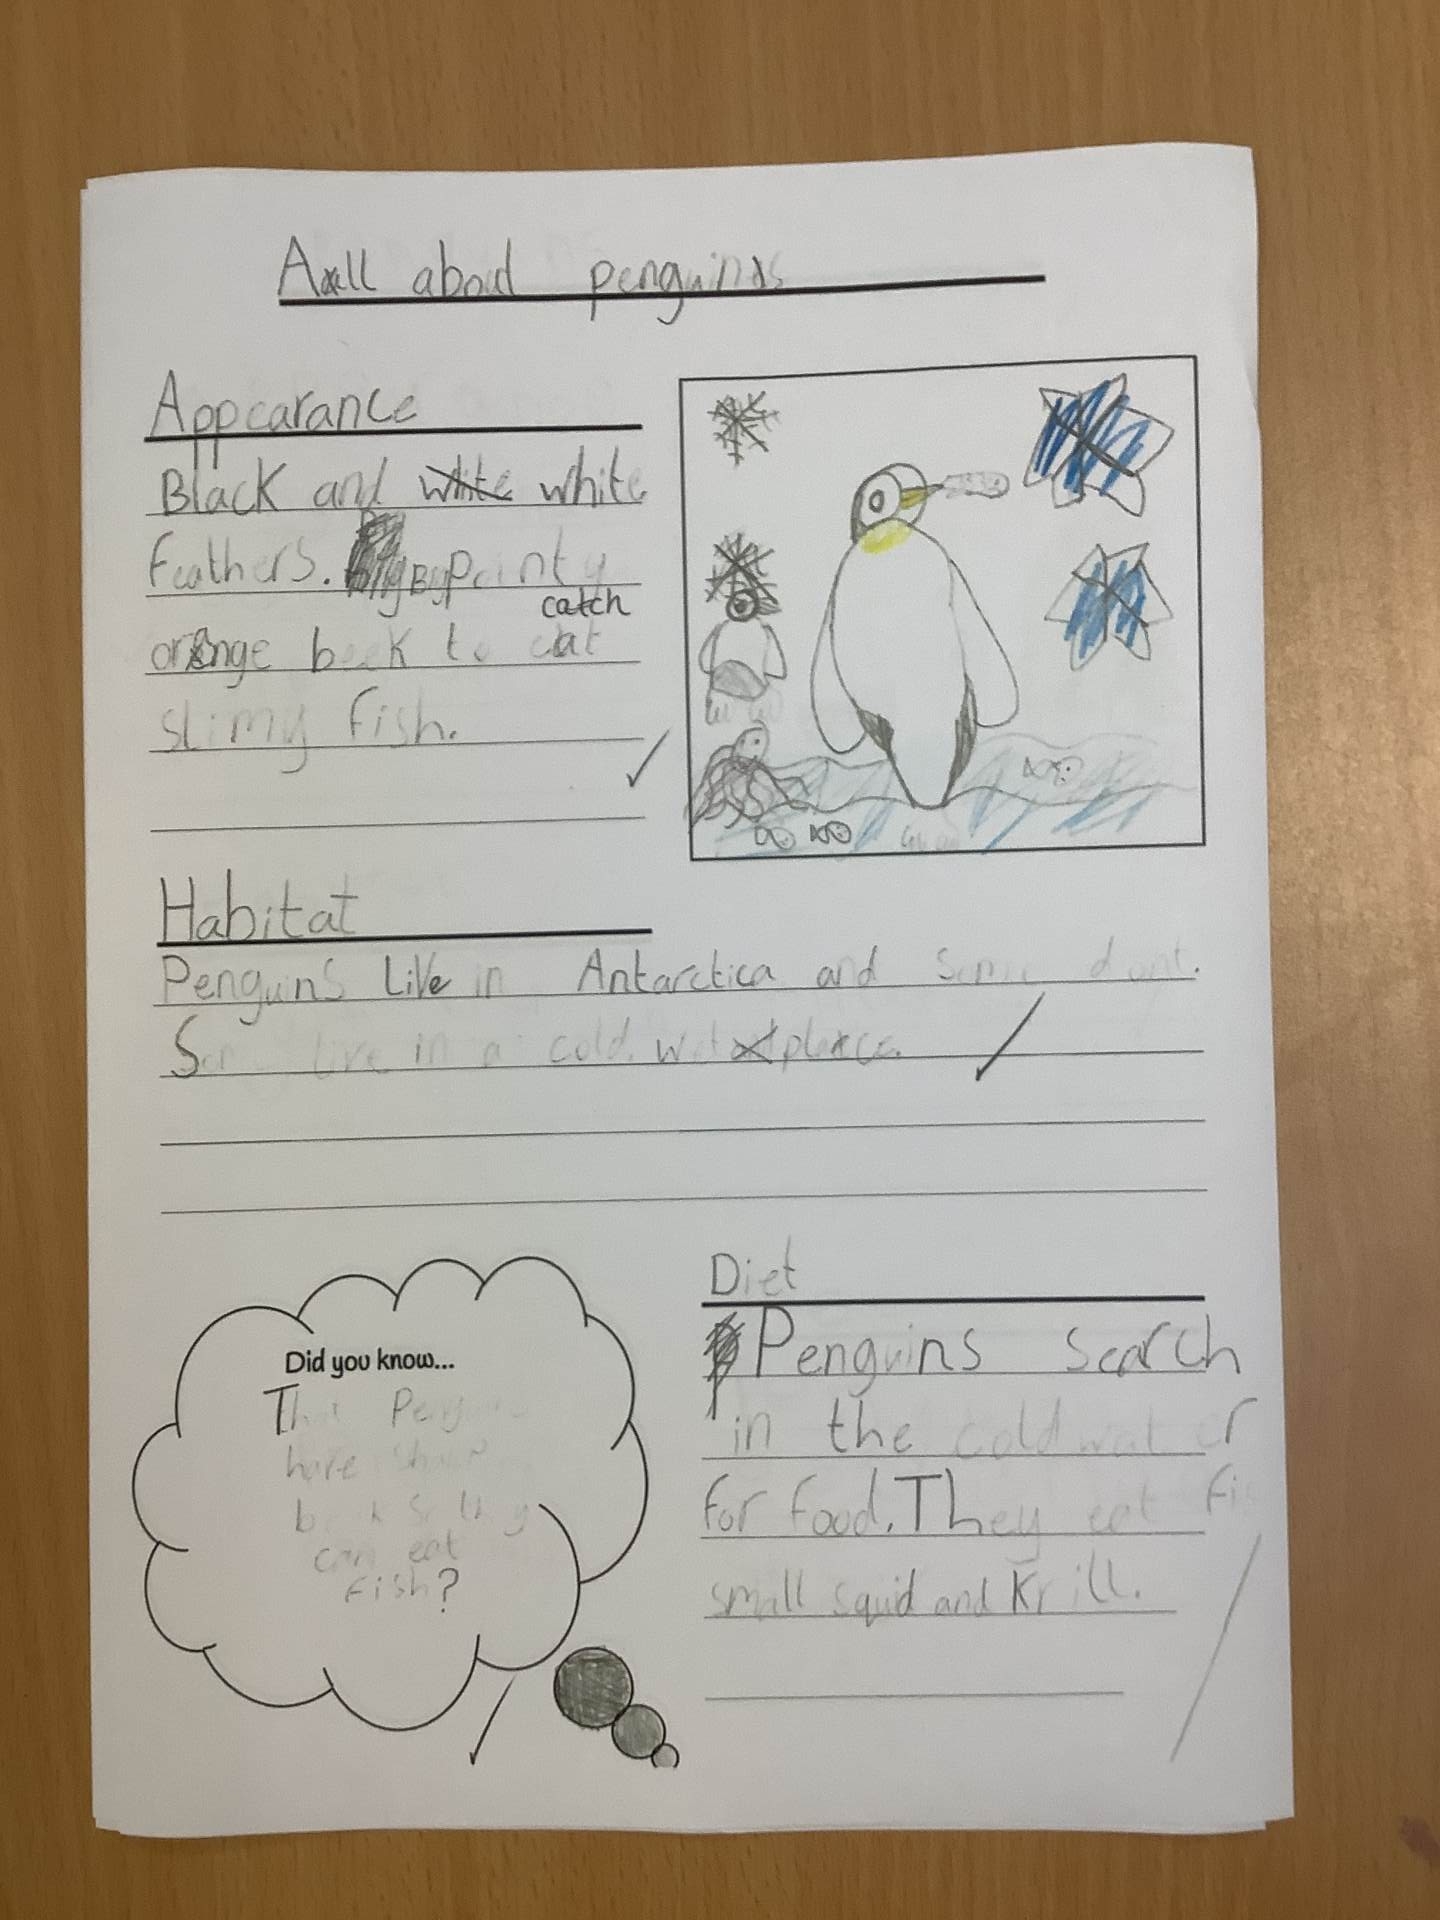 All about penguins
Appearance
Black and white white
feathers. By pointy
catch
orange beek to cat
slimy fish.
Habitat
Penguins live in Antarctica and some dont.
Som live in a cold wet place.
Diet
Penguins search
in the cold water
for food. They eat fi
small squid and krill.
Did you know...
That Penguins
have sharp
beek so they
can eat
fish?